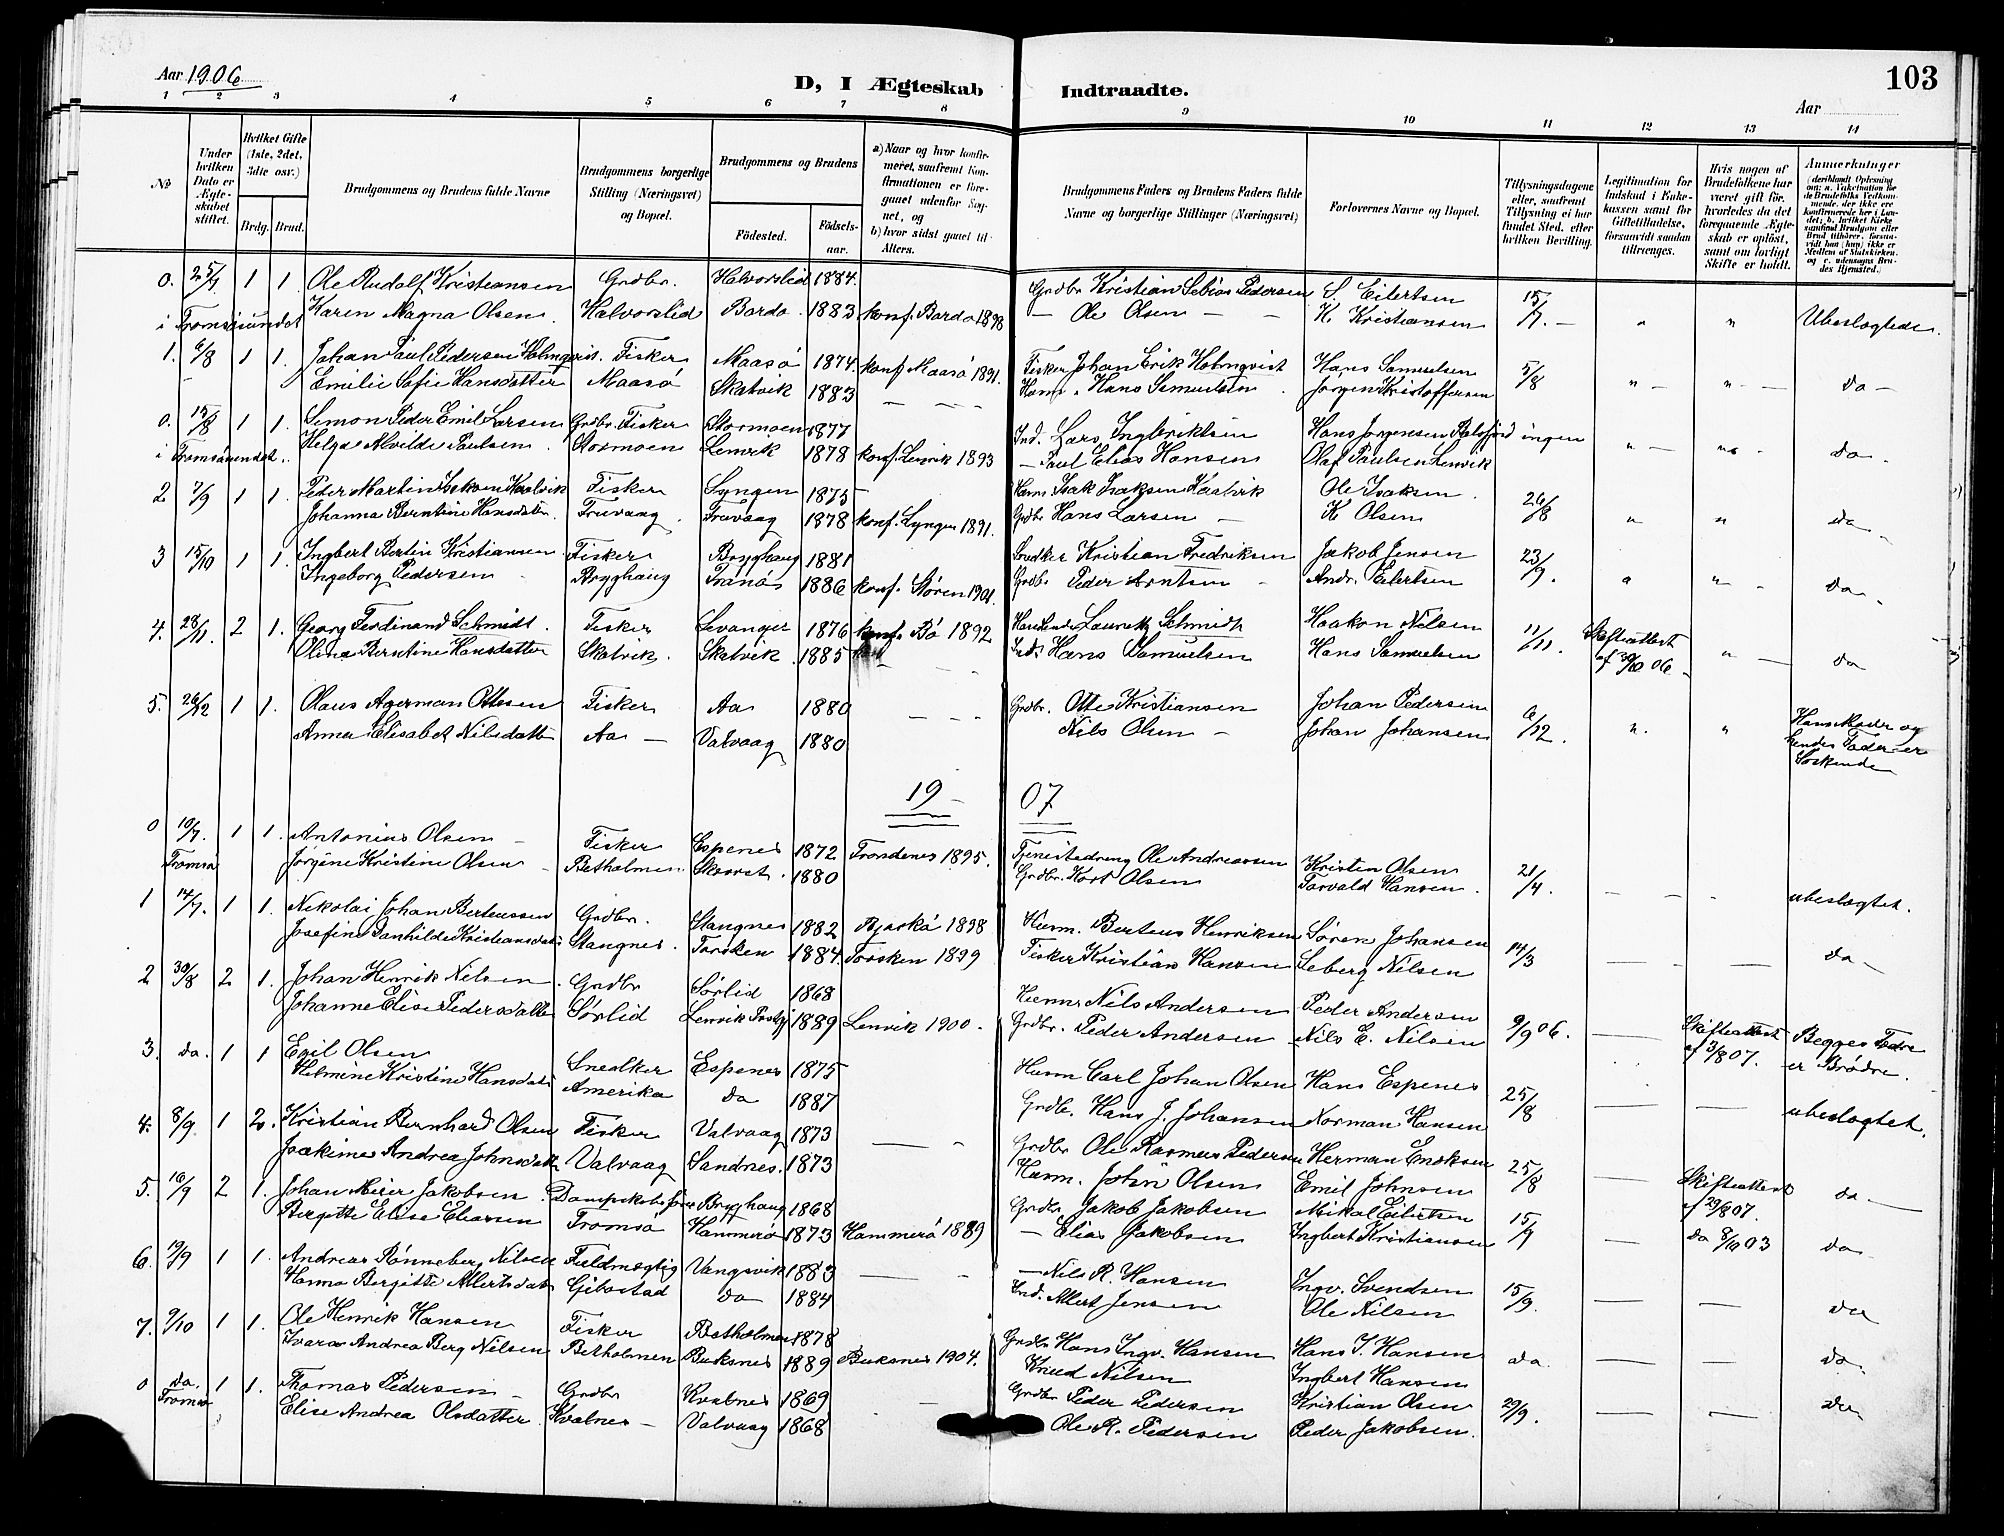 Aar 1906
D, I Ægteskab Indtraadte.
103
Aar
1 2 3 4 5 6 7 8 9 10 11 12 13 14
No
Under hvilken Dato er Ægteskabet stiftet.
Hvilket Gifte (1ste, 2det, 3die osv.)
Brdg. Brud.
Brudgommens og Brudens fulde Navne
Brudgommens borgerlige Stilling (Næringsvei) og Bopæl.
Brudgommens og Brudens
Fødested.
Fødselsaar.
a) Naar og hvor konfirmeret, saafremt Konfirmationen er foregaaet udenfor Sognet, og
b) hvor sidst gaaet til Alters.
Brudgommens Faders og Brudens Faders fulde Navne og borgerlige Stillinger (Næringsvei)
Forlovernes Navne og Bopæl.
Tillysningsdagene eller, saafremt Tillysning ei har fundet Sted, efter hvilken Bevilling.
Legitimation for Indskud i Enkekassen samt for Giftetilladelse, forsaavidt saadan tiltrænges.
Hvis nogen af Brudefolkene har været gift før, hvorledes da det foregaaende Ægteskab er opløst, samt om lovligt Skifte er holdt.
Anmerkninger
0. 25/7 1 1 Ole Rudolf Kristiansen Grdbr. Halvorslid 1884. Grdbr Kristian Tobias Pedersen S. Eilertsen 15/7. — " " Ubeslægtede.
i Tromsøsundet Karen Magna Olsen. Halvorslid Bardo 1883 konf. Bardo 1898 — Ole Olsen — — K. Kristiansen
1. 6/8 1 1. Johan Paul Pedersen Holmqvist. Fisker Maasø 1874. konf. Maasø 1891. Fisker Johan Erik Holmqvist Hans Samuelsen 5/8 " — " — da —
Emilie Sofie Hansdatter Maasø Skatvik 1883 — — — Hans Samuelsen Jørgen Kristoffersen
0. 15/8 1 1. Simon Peder Emil Larsen Grdbr. Fisker Stormoen 1877 Ind. Lars Ingbriktsen Hans Jørgensen Balsfjord ingen " — da.
i Tromsøsundet. Helga Alvilde Paulsen. Stormoen Lenvik 1878 konf. Lenvik 1893 — Paul Elias Hansen Olaf Paulsen Lenvik
2 7/9 1 1. Peder Martin Isaksen Kaalvik Fisker Lyngen 1875 — Isak Isaksen Ole Isaksen. 26/8 " " da
Johanna Berntine Hansdatter. Truvaag. Truvaag 1878 konf. Lyngen 1891. Grdbr Hans Larsen — K. Olsen
3 15/10 1 1. Ingbert Bertin Kristiansen Fisker Brygghaug 1881 Kristian Fredriksen Jakob Jensen 23/9. " — da.
Ingeborg Pedersen Brygghaug Tranø 1886 konf. Støren 1901. Grdbr. Peder Arntsen — Andr. Eilertsen
4. 28/11. 2 1. Georg Ferdinand Schmidt. Fisker Levanger 1876 konf. Bø 1892 Lauritz Schmidt Haakon Nilsen 11/11. Skifteattest af 30/10 06. " — da
Olina Berntine Hansdatter Skatvik. Skatvik. 1885 — — Hans Samuelsen Hans Samuelsen
5. 26/12 1 1. Olaus Agerman Ottesen Fisker Aa 1880 — — — Grdbr. Otte Kristiansen Johan Pedersen 6/12. " " Hans Moder og hendes Fader er Søskende
Anna Elisabet Nilsdatter Aa — Valvaag 1880 Nils Olsen — Johan Johansen
19 — 07
0 10/7 1 1. Antonius Olsen — Fisker Espenes 1872 Trondenes 1895. Tjenestedreng Ole Andreassen Kristen Olsen 21/4. — — ubeslægtet.
Tromsø Jørgine Kristine Olsen — Betholmen 1880 Grdbr. Kort Olsen Torvald Hansen.
1 14/7. 1 1. Nikolai Johan Berteussen Grdbr. Stangnes 1882 Bjarkø 1898 Husm. Berteus Henriksen Søren Johansen 14/3 — — da —
Josefine Ranhilde Kristiansdatter Stangnes. Torsken 1884. Torsken 1899 Fisker Kristian Hansen Seberg Nilsen
2 30/8 2 1. Johan Henrik Nilsen. Grdbr Sørlid 1868 Nils Andersen Peder Andersen 9/9 06. — Skifteattest af 3/8 07. Begges Fædre er Brødre.
Johanne Elise Pedersdatter Sørlid Lenvik Prstgj 1889 Lenvik 1900. Grdbr. Peder Andersen Nils E. Nilsen
3. da. 1 1 Emil Olsen Snedker Espenes 1875 Husm Carl Johan Olsen Hans Espenes 25/8 — — ubeslægtet.
Helmine Kristine Hansdatter Amerika da 1887 Grdbr. Hans J. Johansen Norman Hansen
4. 8/9. 1 2. Kristian Bernhard Olsen Fisker Valvaag 1873 — — Grdbr Ole Rasmus Pedersen Herman Eriksen 25/8 — Skifteattest af 29/8 07. da —
Joakime Andrea Johnsdatter Valvaag Sandnes. 1873 Husm. John Olsen Emil Johnsen
5. 16/9 2 1. Johan Meier Jakobsen. Brygghaug 1868 Grdbr Jakob Jakobsen Mikal Eilertsen 15/9 — da 8/10 03 da —
Bergitte Elise Eliassen Tromsø Hammerø 1873 Hammerø 1889 — Elias Jakobsen Ingbert Kristiansen
6. 19/9 1 1. Andreas Rønneberg Nilsen Fuldmægtig Vangsvik 1883 — — — Nils R. Hansen Ingv. Svendsen 15/9. — — da
Hanna Bergitte Albertsdatter Gibostad da 1884 Ind. Albert Jensen Ole Nilsen
7. 9/10 1 1. Ole Henrik Hansen Fisker Betholmen 1878 Grdbr Hans Ingv. Hansen Hans I. Hansen da — — da.
Ivara Andrea Berg Nilsen Betholmen Buksnes 1889 Buksnes 1904. Knud Nilsen Ingbert Hansen
0 da. 1 1. Thomas Pedersen — Grdbr Kvalnes 1869 — Grdbr Peder Pedersen Kristian Olsen 29/9. — — da
Tromsø Elise Andrea Olsdatter. Kvalnes — Valvaag 1868 Ole R. Pedersen Peder Jakobsen.